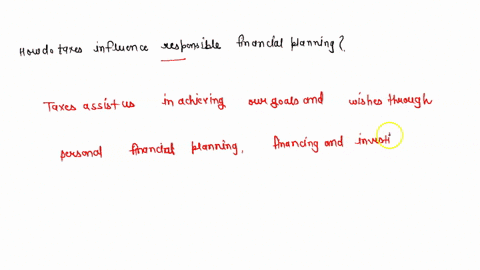 How do taxes influence responsible financial planning?
Taxes assist us in achieving our goals and wishes through
personal financial planning, financing and investi